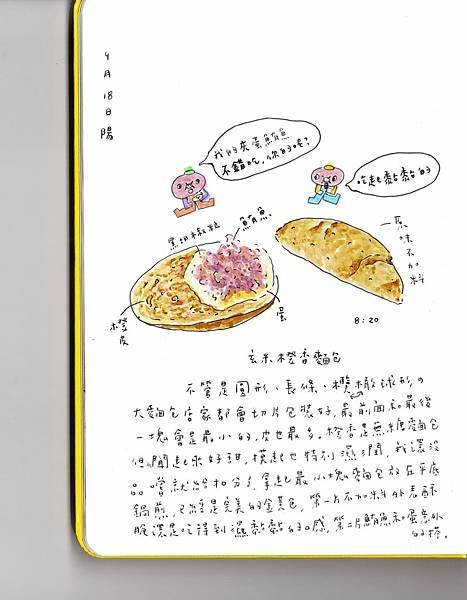 4月18日陽
我的灰蛋鮪魚
不錯吃,你的呢?
吃起黏黏的
黑胡椒粒
鮪魚
一原味不加料
橙皮
蛋
8:20
玄米橙香麵包
不管是圓形、長條、橄欖球形,
大麵包店家都會切片包裝好,最前面和最後
一塊會是最小的,皮也最多。橙香是無糖麵包
但聞起來好甜,摸起也特別濕潤,我還沒
品嚐就給扣分了,拿起最小塊麵包放在平底
鍋煎,已經是完美的金黃色,第一片不加料外表酥
脆還是吃得到濕黏黏的口感,第二片鮪魚和蛋意外
的搭。